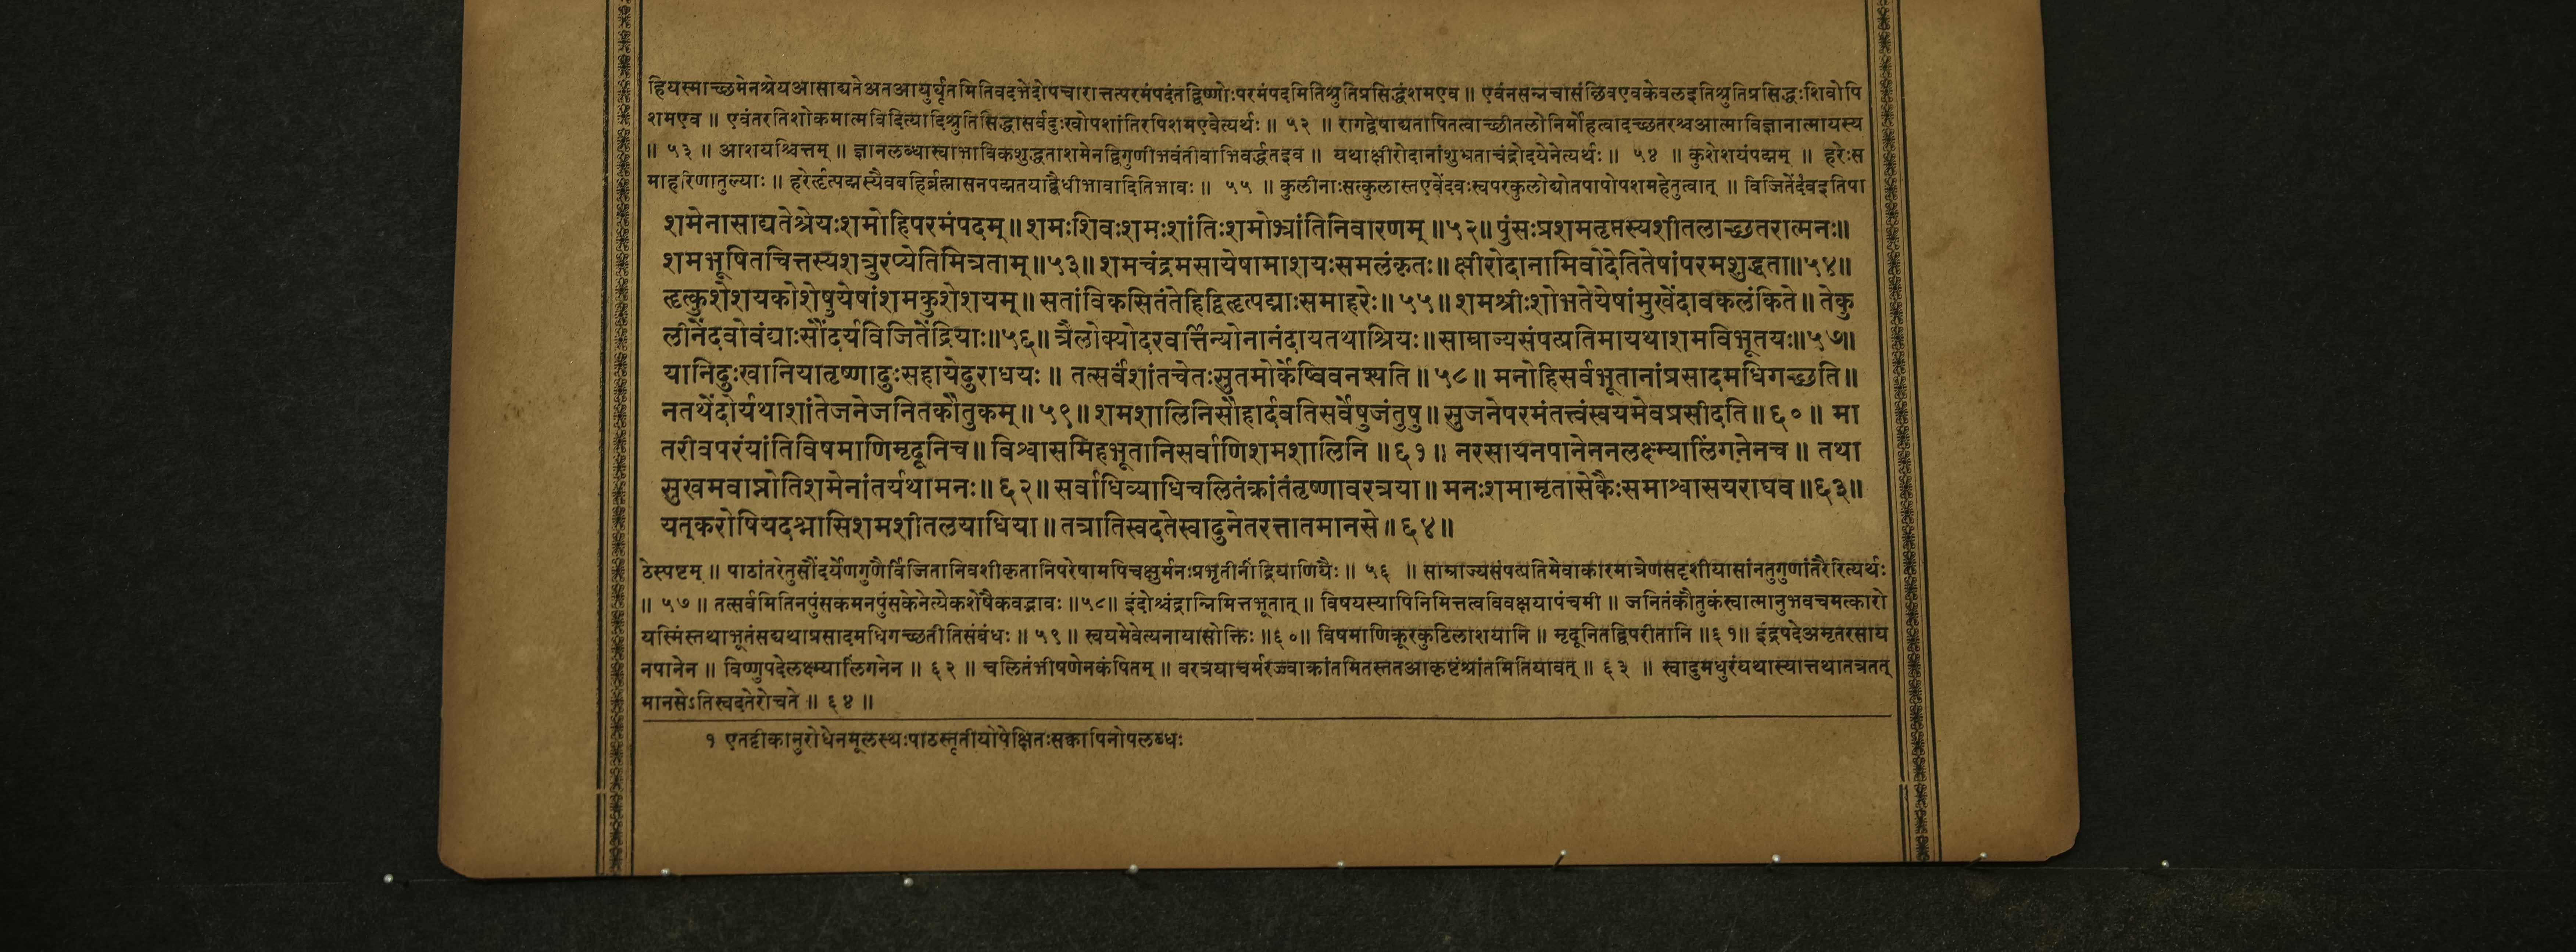 हियस्माच्छमेनश्रेयआसाद्यतेअतआयुर्घृतमितिवदभेदोपचारात्तत्परमंपदंतद्विष्णोःपरमंपदमितिश्रुतिप्रसिद्धंशमएव ॥ एवंनसन्नचासंछिवएवकेवलइतिश्रुतिप्रसिद्धःशिवोपि
शमएव ॥ एवंतरतिशोकमात्मविदित्यादिश्रुतिसिद्धासर्वदुःखोपशांतिरपिशमएवेत्यर्थः ॥ ५२ ॥ रागद्वेषाद्यतापितत्वाच्छीतलोनिर्मोहत्वादच्छतरश्चआत्माविज्ञानात्मायस्य
॥ ५३ ॥ आशयश्चित्तम् ॥ ज्ञानलब्धास्वाभाविकशुद्धताशमेनद्विगुणीभवंतीवाभिवर्द्धतइव ॥ यथाक्षीरोदानांशुभ्रताचंद्रोदयेनेत्यर्थः ॥ ५४ ॥ कुशेशयंपद्मम् ॥ हरेःस
माहरिणातुल्याः ॥ हरेर्हृत्पद्मस्यैवबहिर्ब्रह्मासनपद्मतयाद्वैधीभावादितिभावः ॥ ५५ ॥ कुलीनाःसत्कुलास्तएवेंदवःस्वपरकुलोद्योतपापोपशमहेतुत्वात् ॥ विजितेंदवइतिपा
शमेनासाद्यतेश्रेयःशमोहिपरमंपदम् ॥ शमःशिवःशमःशांतिःशमोभ्रांतिनिवारणम् ॥५२॥ पुंसःप्रशमतृप्तस्यशीतलाच्छतरात्मनः॥
शमभूषितचित्तस्यशत्रुरप्येतिमित्रताम् ॥५३॥ शमचंद्रमसायेषामाशयःसमलंकृतः॥ क्षीरोदानामिवोदेतितेषांपरमशुद्धता॥५४॥
हृत्कुशेशयकोशेषुयेषांशमकुशेशयम् ॥ सतांविकसितंतेहिद्विहृत्पद्माःसमाहरेः॥ ५५॥ शमश्रीःशोभतेयेषांमुखेंदावकलंकिते॥ तेकु
लीनेंदवोवंद्याःसौंदर्यविजितेंद्रियाः॥५६॥ त्रैलोक्योदरवर्त्तिन्योनानंदायतथाश्रियः॥ साम्राज्यसंपत्प्रतिमायथाशमविभूतयः॥५७॥
यानिदुःखानियातृष्णादुःसहायेदुराधयः ॥ तत्सर्वंशांतचेतःसुतमोर्केष्विवनश्यति ॥ ५८॥ मनोहिसर्वभूतानांप्रसादमधिगच्छति॥
नतथेंदोर्यथाशांतेजनेजनितकौतुकम् ॥ ५९॥ शमशालिनिसौहार्दवतिसर्वेषुजंतुषु॥ सुजनेपरमंतत्त्वंस्वयमेवप्रसीदति॥ ६०॥ मा
तरीवपरंयांतिविषमाणिमृदूनिच॥ विश्वासमिहभूतानिसर्वाणिशमशालिनि ॥ ६१॥ नरसायनपानेननलक्ष्म्यालिंगनेनच ॥ तथा
सुखमवाप्नोतिशमेनांतर्यथामनः॥ ६२॥ सर्वाधिव्याधिचलितंक्रांतंतृष्णावरत्रया॥ मनःशमामृतासेकैःसमाश्वासयराघव॥६३॥
यत्करोषियदश्नासिशमशीतलयाधिया॥ तत्रातिस्वदतेस्वादुनेतरत्तातमानसे॥ ६४॥
ठेस्पष्टम् ॥ पाठांतरेतुसौंदर्येणगुणैर्विजितानिवशीकृतानिपरेषामपिचक्षुर्मनःप्रभृतीनींद्रियाणियैः ॥ ५६ ॥ साम्राज्यसंपत्प्रतिमेवाकारमात्रेणसदृशीयासांनतुगुणांतरैरित्यर्थः
॥ ५७ ॥ तत्सर्वमितिनपुंसकमनपुंसकेनेत्येकशेषैकवद्भावः ॥५८॥ इंदोश्चंद्रान्निमित्तभूतात् ॥ विषयस्यापिनिमित्तत्वविवक्षयापंचमी ॥ जनितंकौतुकंस्वात्मानुभवचमत्कारो
यस्मिंस्तथाभूतंसद्यथाप्रसादमधिगच्छतीतिसंबंधः ॥ ५९ ॥ स्वयमेवेत्यनायासोक्तिः ॥६०॥ विषमाणिक्रूरकुटिलाशयानि ॥ मृदूनितद्विपरीतानि ॥६१॥ इंद्रपदेअमृतरसाय
नपानेन ॥ विष्णुपदेलक्ष्म्यालिंगनेन ॥ ६२ ॥ चलितंभीषणेनकंपितम् ॥ वरत्रयाचर्मरज्ज्वाक्रांतमितस्ततआकृष्टंश्रांतमितियावत् ॥ ६३ ॥ स्वादुमधुरंयथास्यात्तथातत्रतत्
मानसेऽतिस्वदतेरोचते ॥ ६४ ॥
१ एतट्टीकानुरोधेनमूलस्थःपाठस्तृतीयोपेक्षितःसक्वापिनोपलब्धः